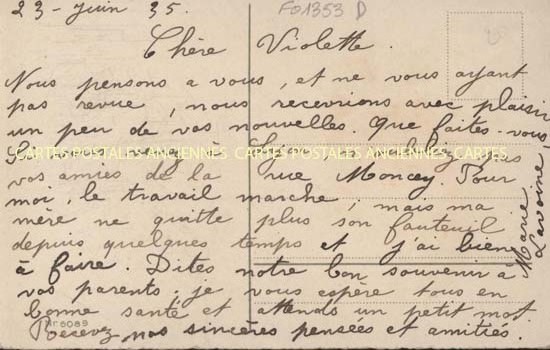 23 - Juin 35.
F01353 D
Chère Violette.
Nous pensons a vous, et ne vous ayant
pas revue, nous recevrions avec plaisir
un peu de vos nouvelles. Que faites-vous,
Si vous venez à Lyon n'oubliez pas
CARTES POSTALES ANCIENNES CARTES POSTALES ANCIENNES CARTES
vos amies de la rue Moncey. Pour
moi, le travail marche, mais ma
mère ne quitte plus son fauteuil
depuis quelques temps et j'ai bien
à faire. Dites notre bon souvenir à
vos parents. je vous espère tous en
bonne santé et attends un petit mot.
Nr 6089
Recevez nos sincères pensées et amitiés.
Marie
Lavoine